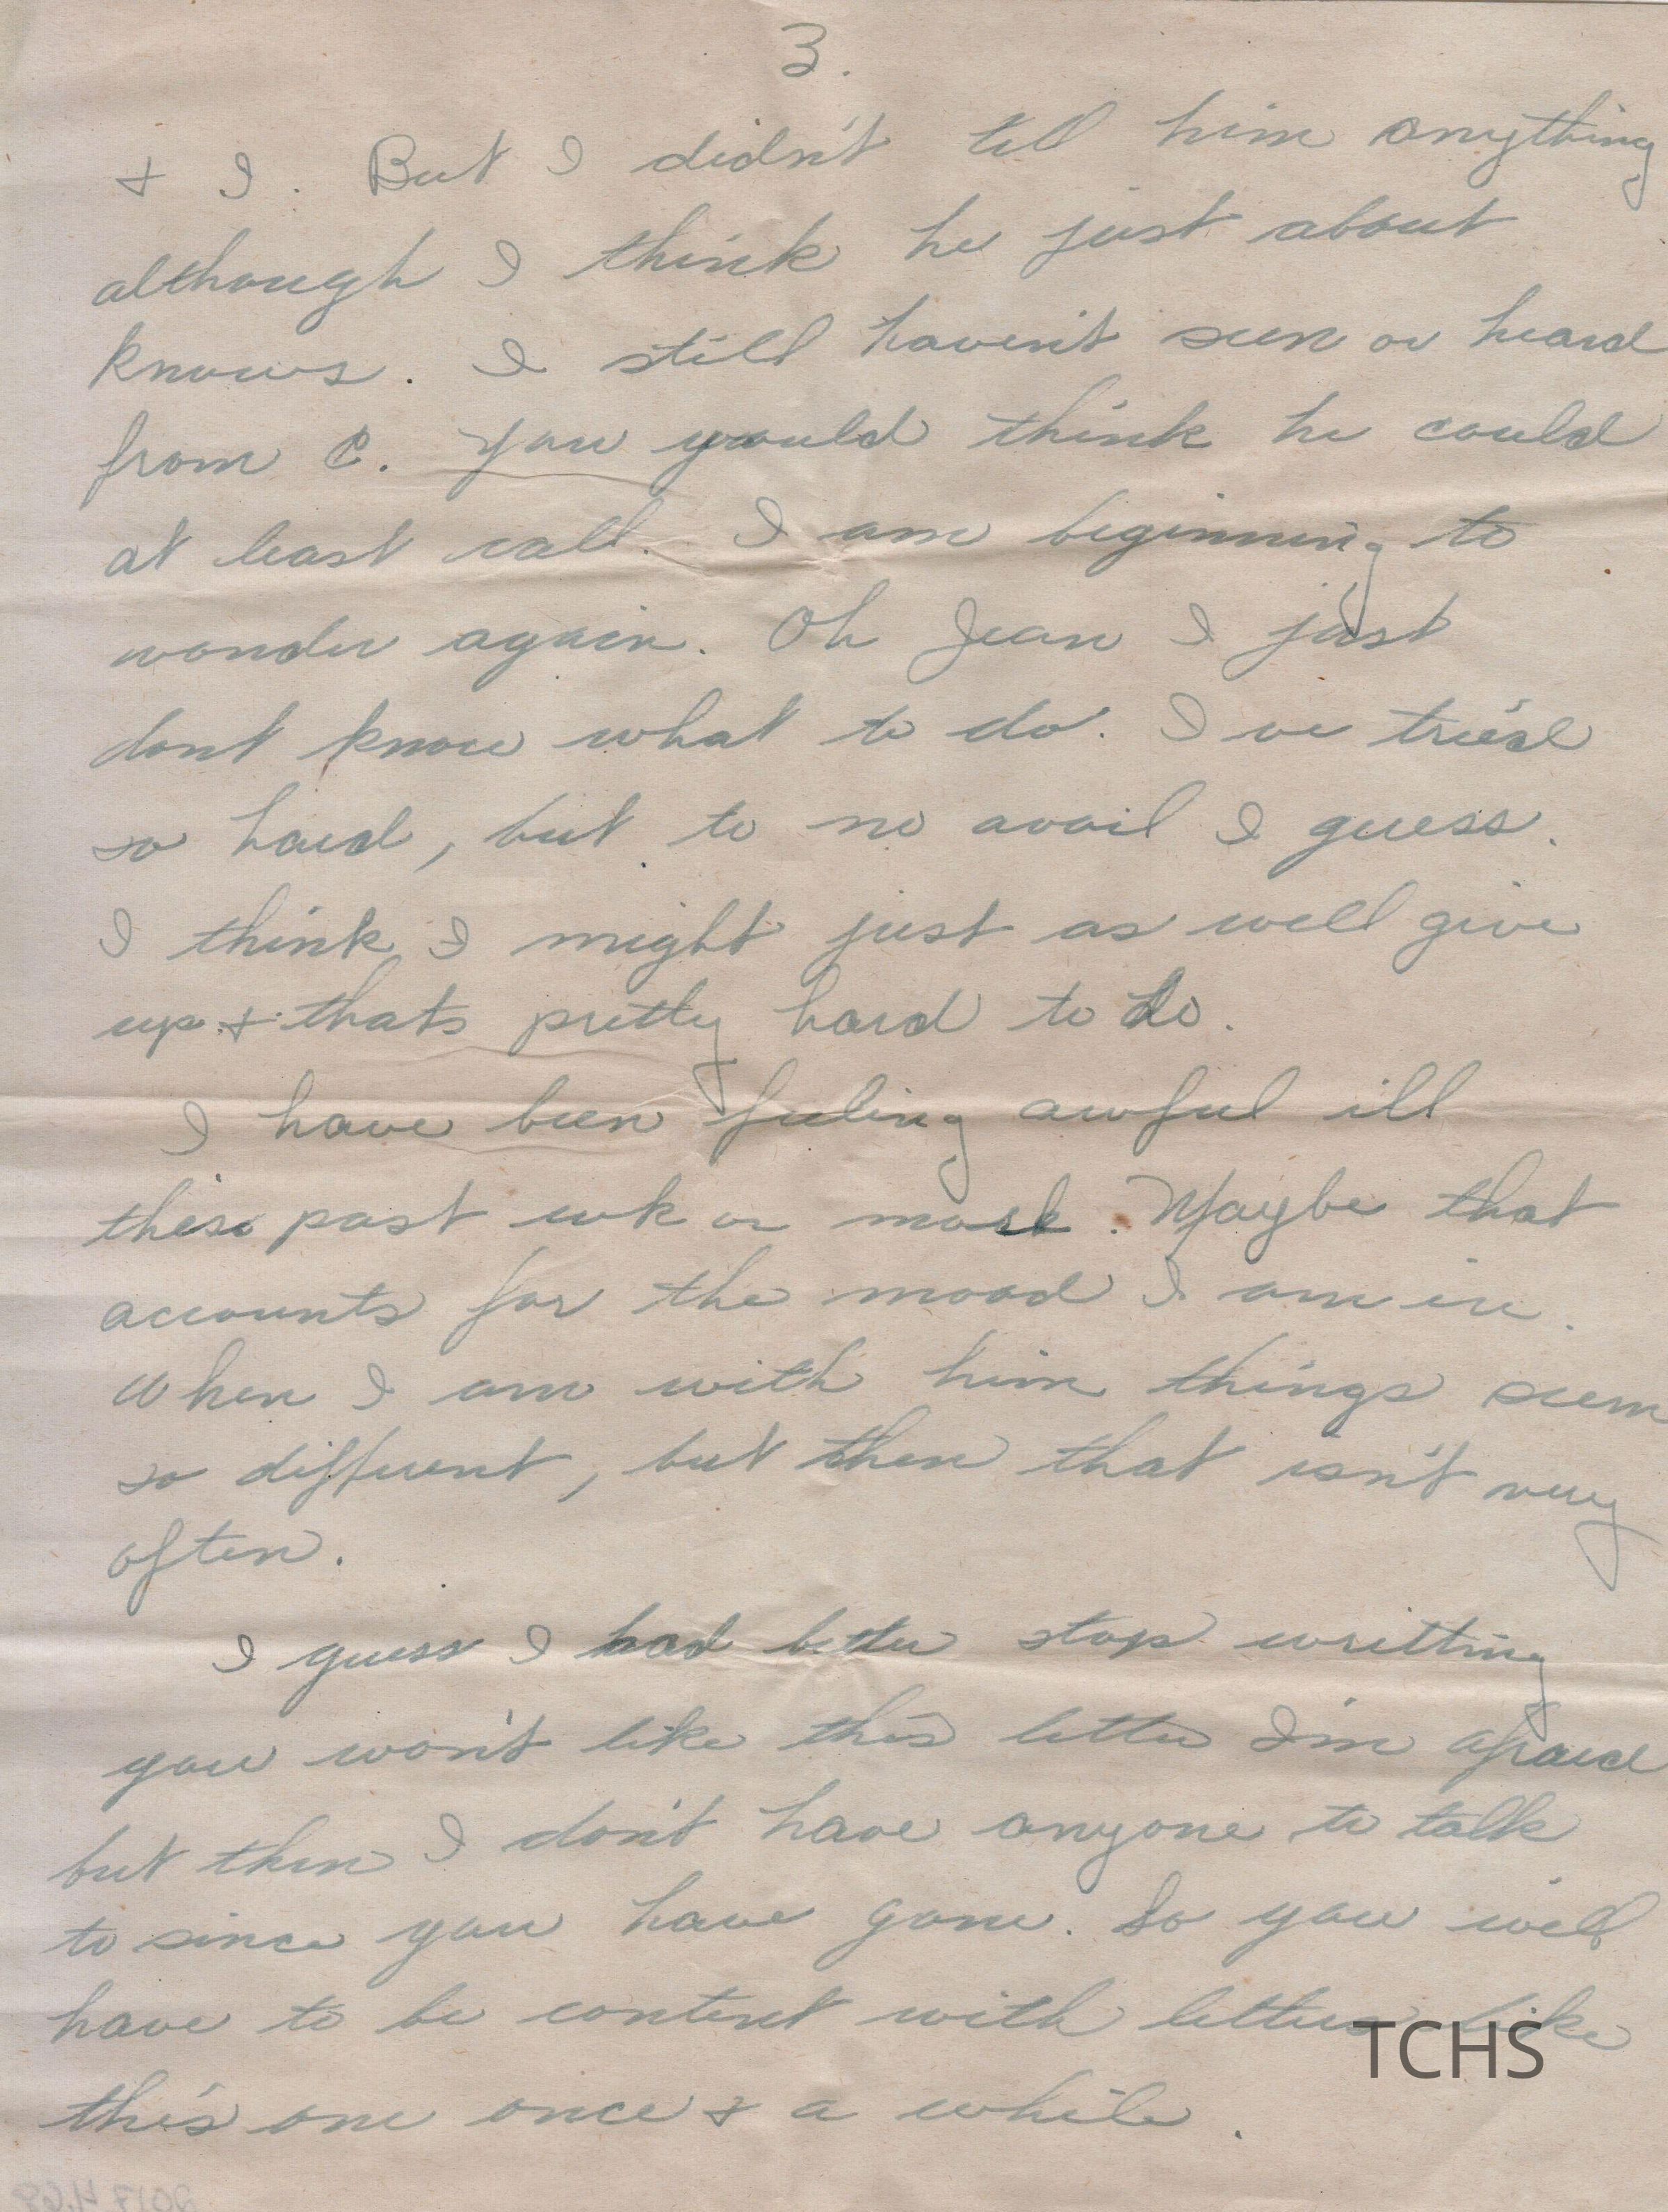 3.
& I. But I didn't tell him anything
although I think he just about
knows. I still haven't seen or heard
from C. You would think he could
at least call. I am beginning to
wonder again. Oh Jean I just
dont know what to do. I ve tried
so hard, but to no avail I guess.
I think I might just as well give
up & thats pretty hard to do.
I have been feeling awful ill
this past wk or more. Maybe that
accounts for the mood I am in.
When I am with him things seem
so different, but then that isn't very
often.
I guess I had better stop writting
you won't like this letter I'm afraid
but then I don't have anyone to talk
to since you have gone. So you will
have to be content with letters like
TCHS
this one once & a while.
2017.4.68